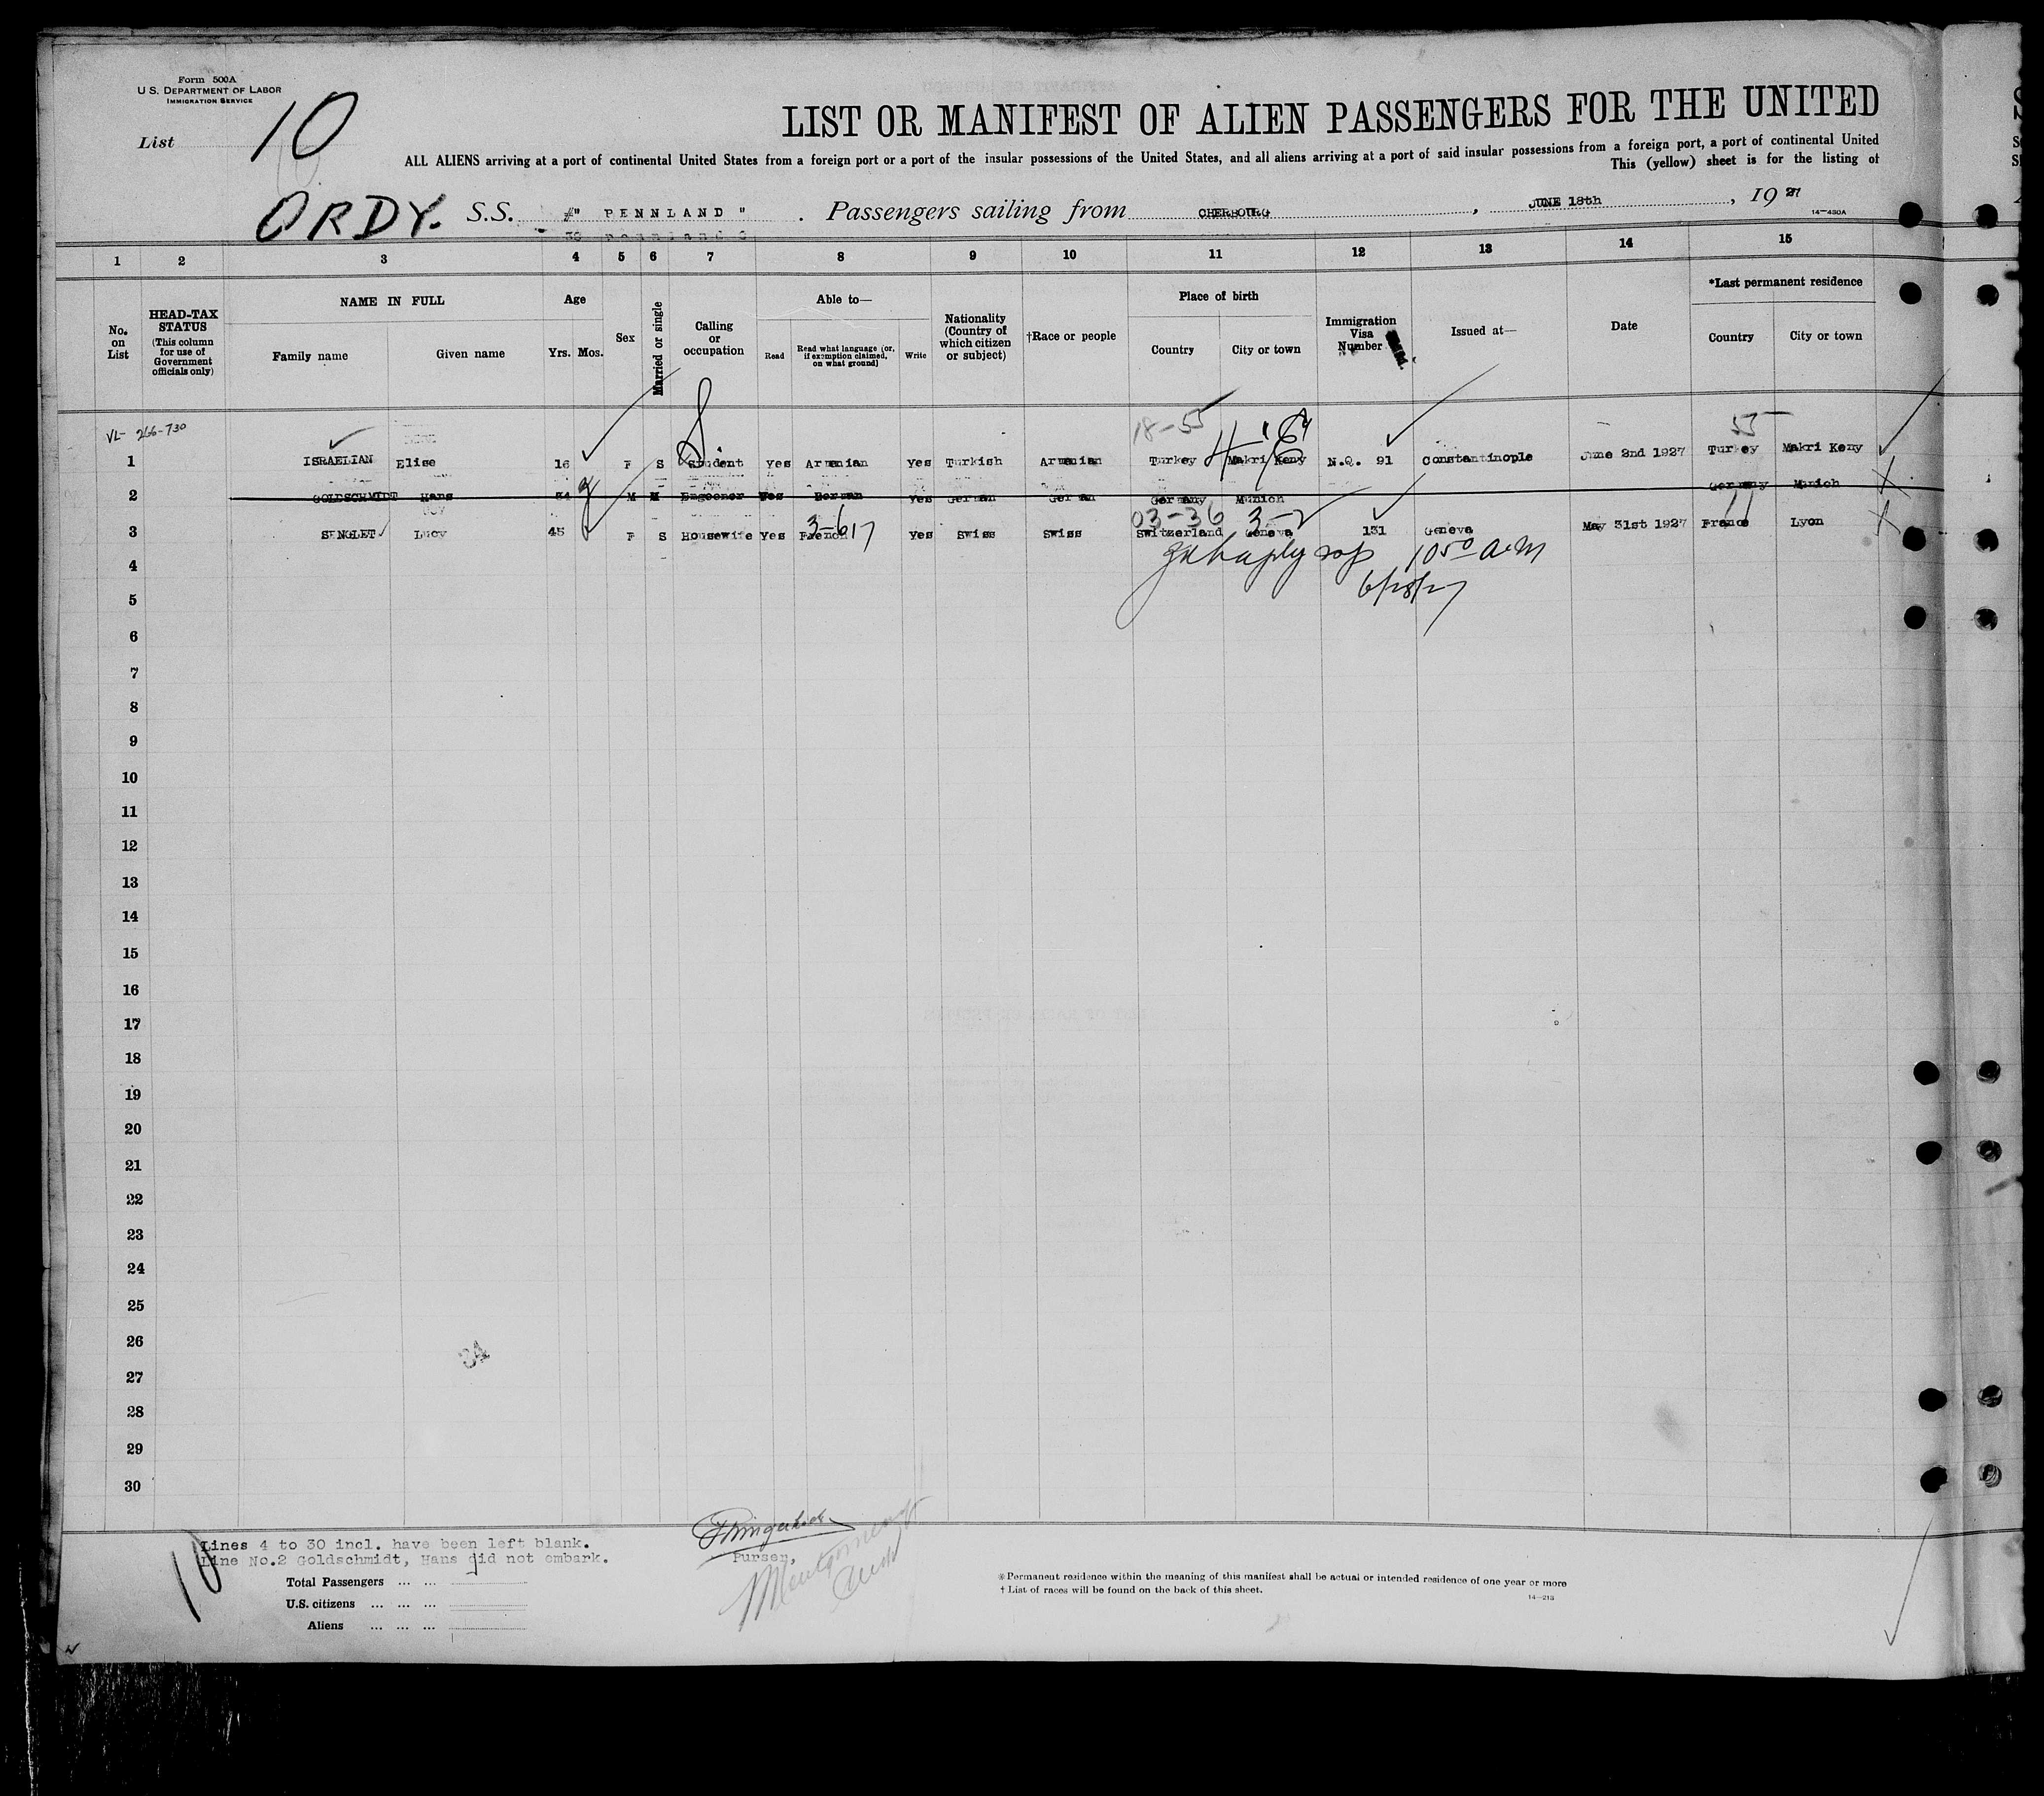 Form 500A
U. S. DEPARTMENT OF LABOR
IMMIGRATION SERVICE
List 10
LIST OR MANIFEST OF ALIEN PASSENGERS FOR THE UNITED
ALL ALIENS arriving at a port of continental United States from a foreign port or a port of the insular possessions of the United States, and all aliens arriving at a port of said insular possessions from a foreign port, a port of continental United
This (yellow) sheet is for the listing of
ORDY. S.S. " PENNLAND " . Passengers sailing from CHERBOURG , JUNE 18th , 1927
14—430A
1 2 3 4 5 6 7 8 9 10 11 12 13 14 15
No. on List
HEAD-TAX STATUS (This column for use of Government officials only)
NAME IN FULL
Family name Given name
Age
Yrs. Mos.
Sex
Married or single
Calling or occupation
Able to—
Read
Read what language (or, if exemption claimed, on what ground)
Write
Nationality (Country of which citizen or subject)
†Race or people
Place of birth
Country City or town
Immigration Visa Number
Issued at—
Date
*Last permanent residence
Country City or town
VL- 266-730
18-55
55
1 ISRAELIAN Elise 16 F S Student yes Armenian yes Turkish Armenian Turkey Makri Keny N.Q. 91 Constantinople June 2nd 1927 Turkey Makri Keny
2 GOLDSCHMIDT Hans 34 M M Engeener Yes German yes German German Germany Munich Germany Munich
03-36 3-2
3-617
11
3 SENGLET Lucy 45 F S Housewife yes French yes Swiss Swiss Switzerland Geneva 131 Geneva May 31st 1927 France Lyon
10 50 a.m
6/28/27
4
5
6
7
8
9
10
11
12
13
14
15
16
17
18
19
20
21
22
23
24
25
26
27
28
29
30
34
10
Lines 4 to 30 incl. have been left blank.
Line No.2 Goldschmidt, Hans did not embark.
Purser,
Total Passengers ... ...
U.S. citizens ... ... ...
Aliens ... ... ...
* Permanent residence within the meaning of this manifest shall be actual or intended residence of one year or more
† List of races will be found on the back of this sheet.
14—213